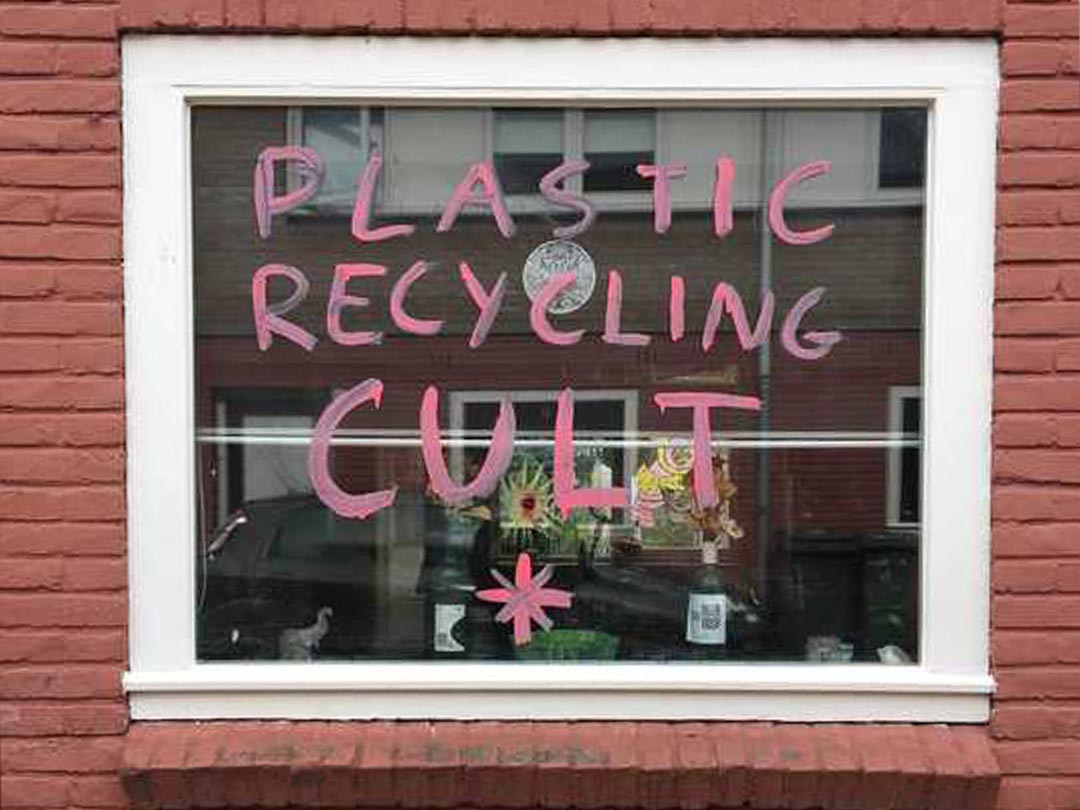 PLASTIC
RECYCLING
CULT
*